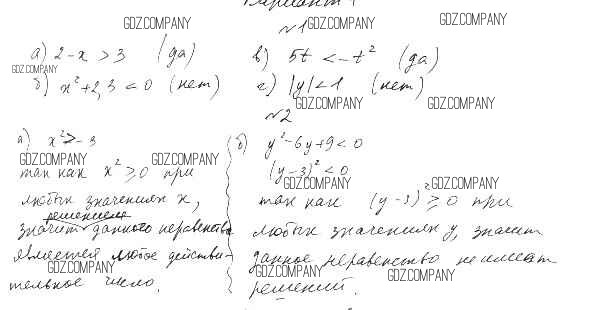 Вариант 1
№1
а) 2-x > 3 (да)
в) 5t < -t² (да)
б) x²+2,3 < 0 (нет)
г) |y|<1 (нет)
№2
а) x² > -3
так как x² ≥ 0 при
любых значениях x,
решением
значит данного неравенства
является любое действи-
тельное число.
б) y²-6y+9<0
(y-3)² < 0
так как (y-3)² ≥ 0 при
любых значениях y, значит
данное неравенство не имеет
решений.
GDZ.COMPANY
GDZ.COMPANY
GDZ.COMPANY
GDZ.COMPANY
GDZ.COMPANY
GDZ.COMPANY
GDZ.COMPANY
GDZ.COMPANY
GDZ.COMPANY
GDZ.COMPANY
GDZ.COMPANY
GDZ.COMPANY
GDZ.COMPANY